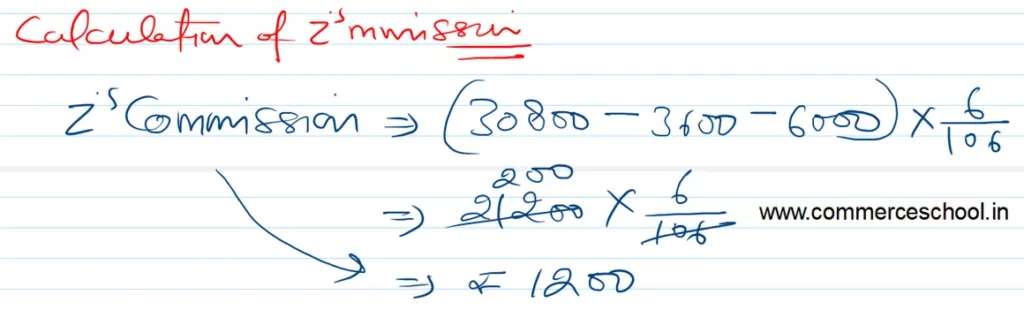 Calculation of Z's mmission
Z's Commission ⇒ (30800 - 3600 - 6000) × 6/106
200
⇒ 21200 × 6/106
www.commerceschool.in
⇒ ₹ 1200